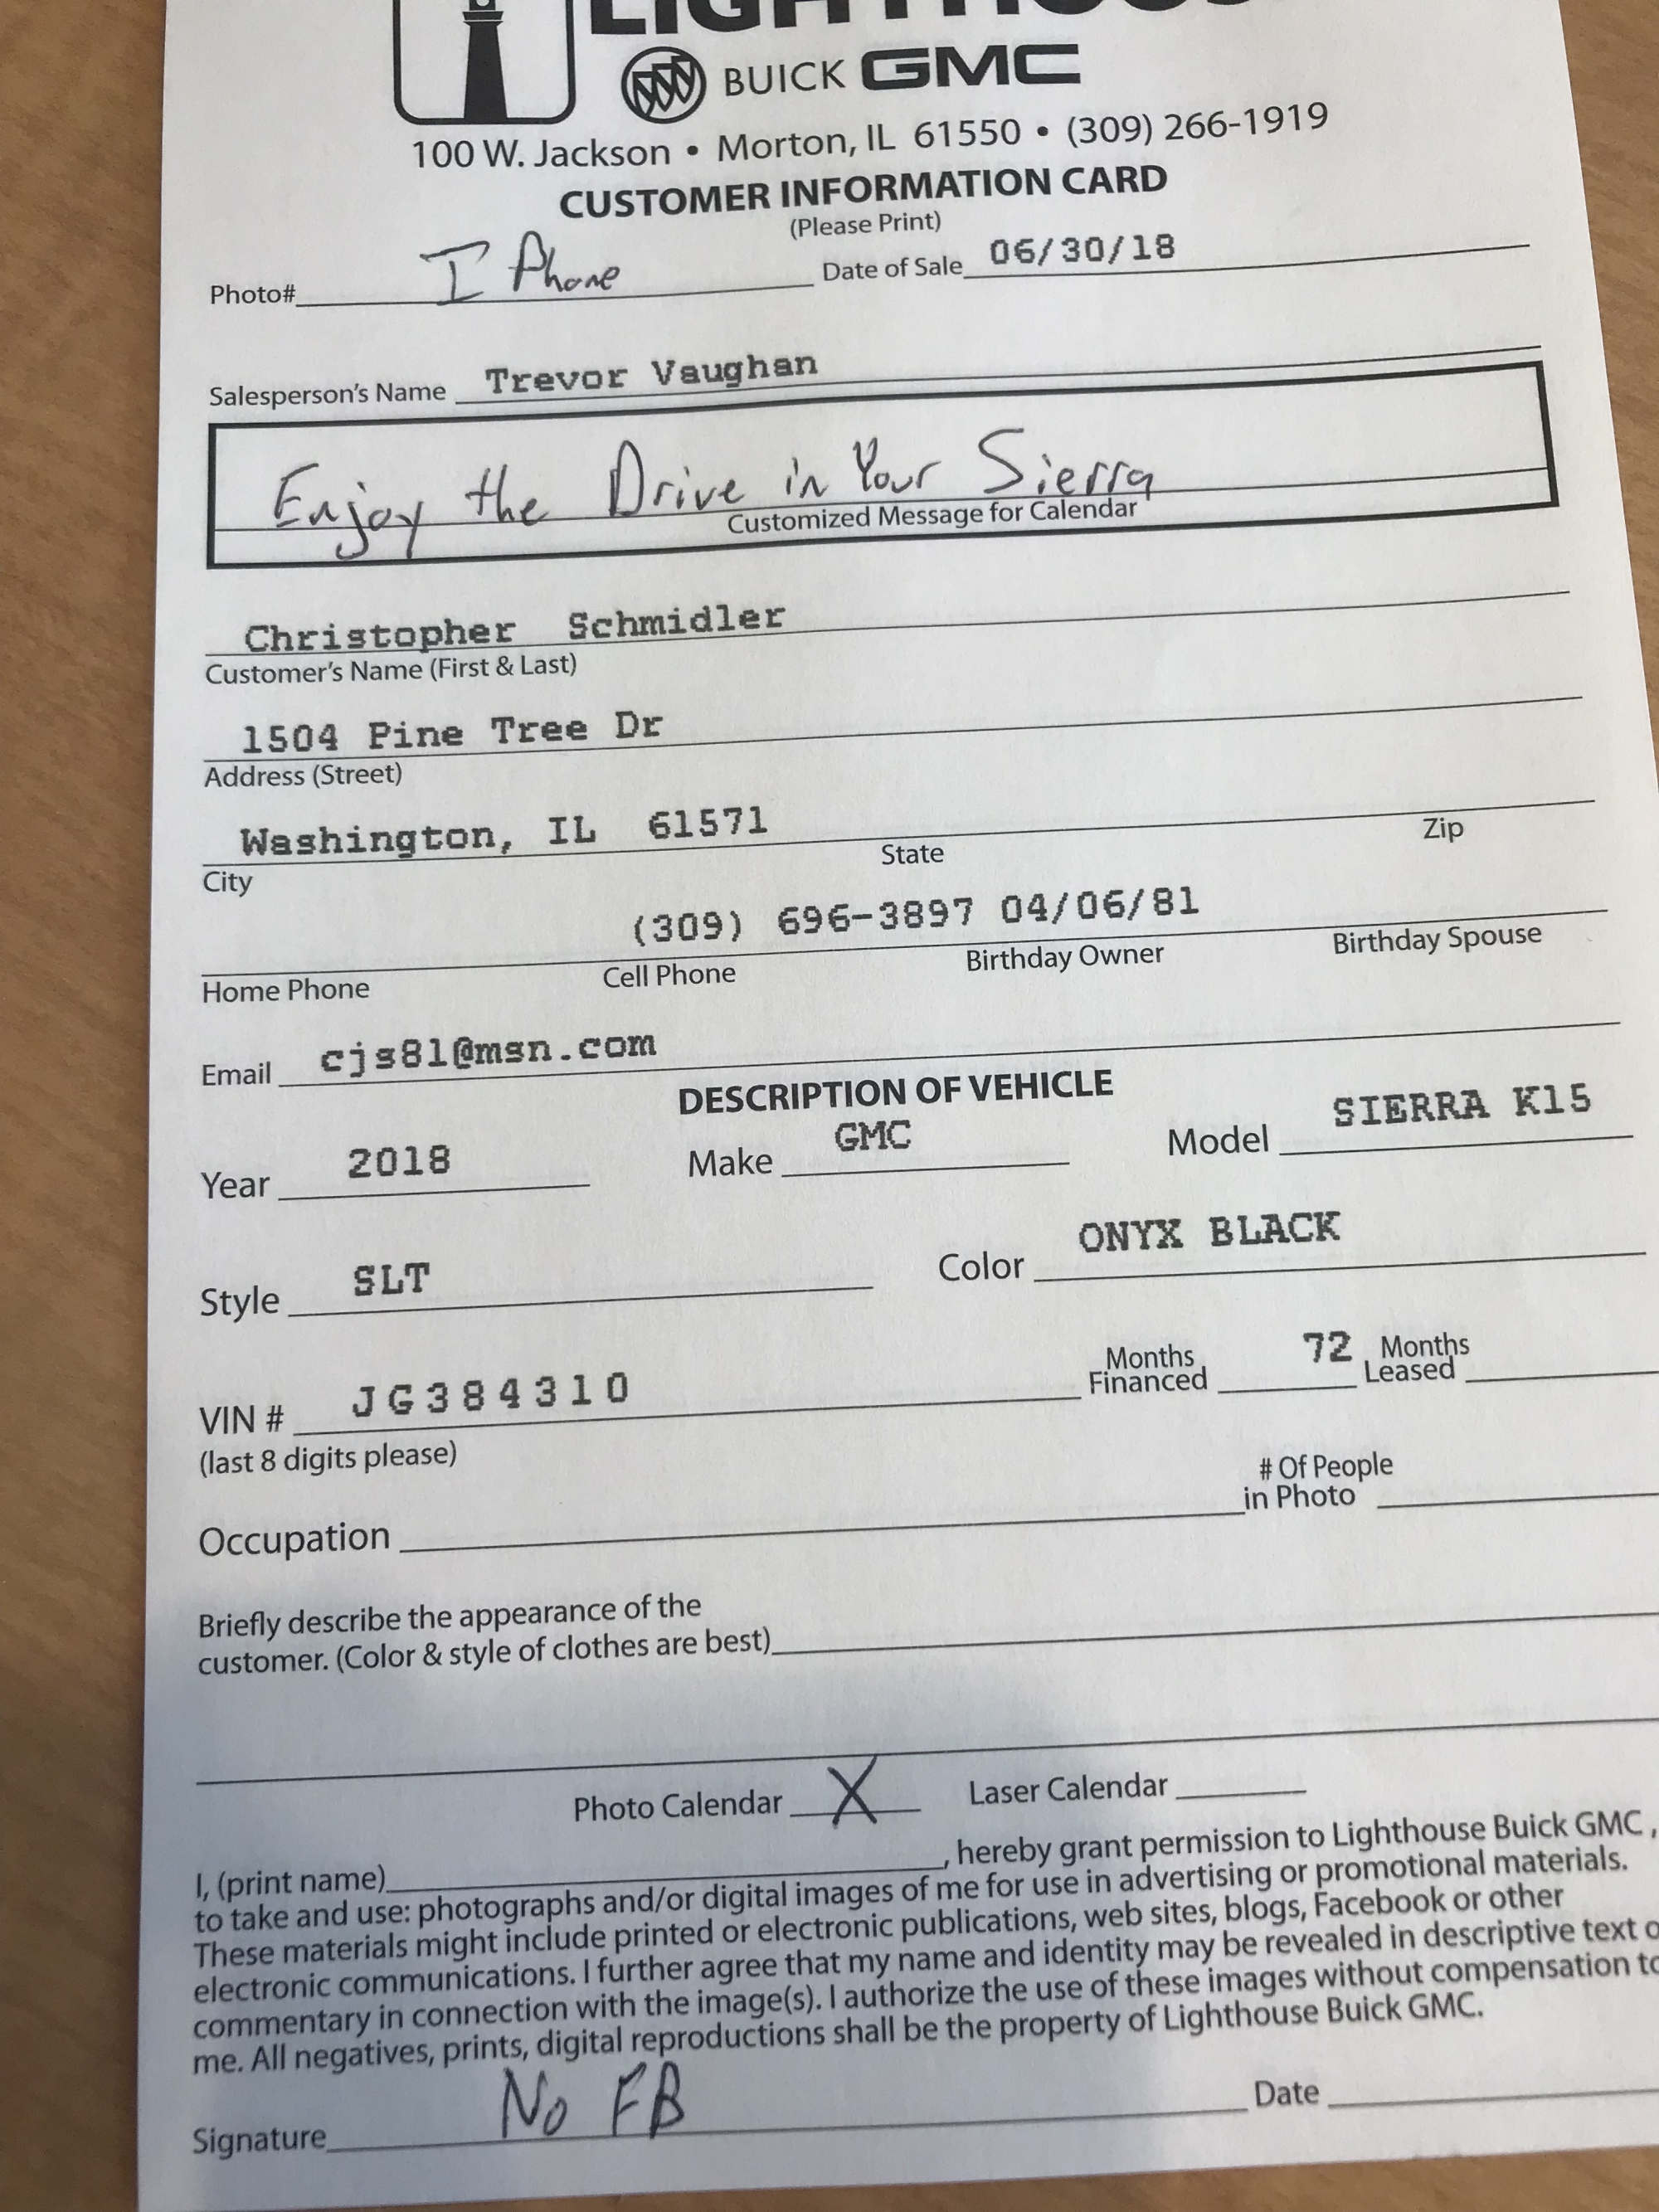 LIGHTHOUSE
BUICK GMC
100 W. Jackson • Morton, IL 61550 • (309) 266-1919
CUSTOMER INFORMATION CARD
(Please Print)
Photo# I Phone Date of Sale 06/30/18
Salesperson's Name Trevor Vaughan
Enjoy the Drive in Your Sierra
Customized Message for Calendar
Christopher Schmidler
Customer's Name (First & Last)
1504 Pine Tree Dr
Address (Street)
Washington, IL 61571
City State Zip
(309) 696-3897 04/06/81
Home Phone Cell Phone Birthday Owner Birthday Spouse
Email cjs81@msn.com
DESCRIPTION OF VEHICLE
Year 2018 Make GMC Model SIERRA K15
Style SLT Color ONYX BLACK
VIN # JG384310 Months Financed 72 Months Leased
(last 8 digits please)
Occupation # Of People in Photo
Briefly describe the appearance of the
customer. (Color & style of clothes are best)
Photo Calendar X Laser Calendar
I, (print name) , hereby grant permission to Lighthouse Buick GMC ,
to take and use: photographs and/or digital images of me for use in advertising or promotional materials.
These materials might include printed or electronic publications, web sites, blogs, Facebook or other
electronic communications. I further agree that my name and identity may be revealed in descriptive text o
commentary in connection with the image(s). I authorize the use of these images without compensation to
me. All negatives, prints, digital reproductions shall be the property of Lighthouse Buick GMC.
Signature No FB Date